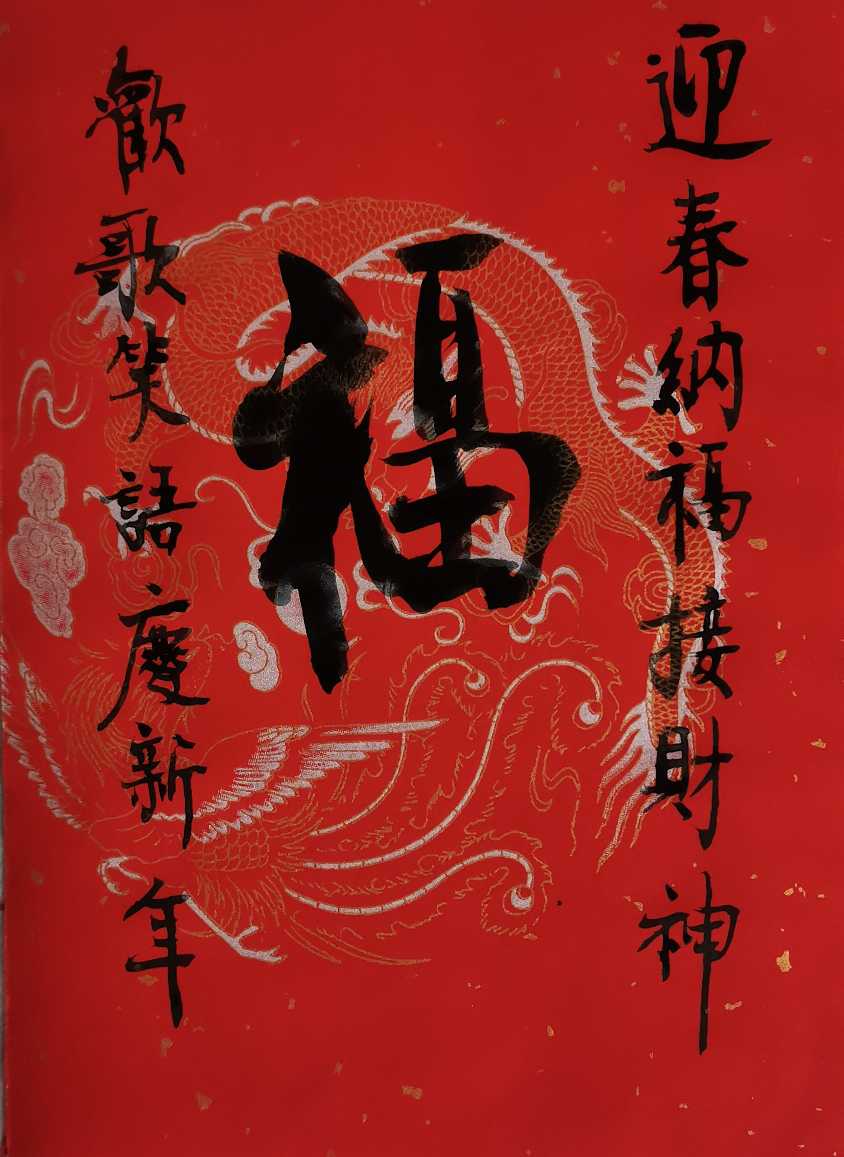 迎春納福接財神
福
歡歌笑語慶新年